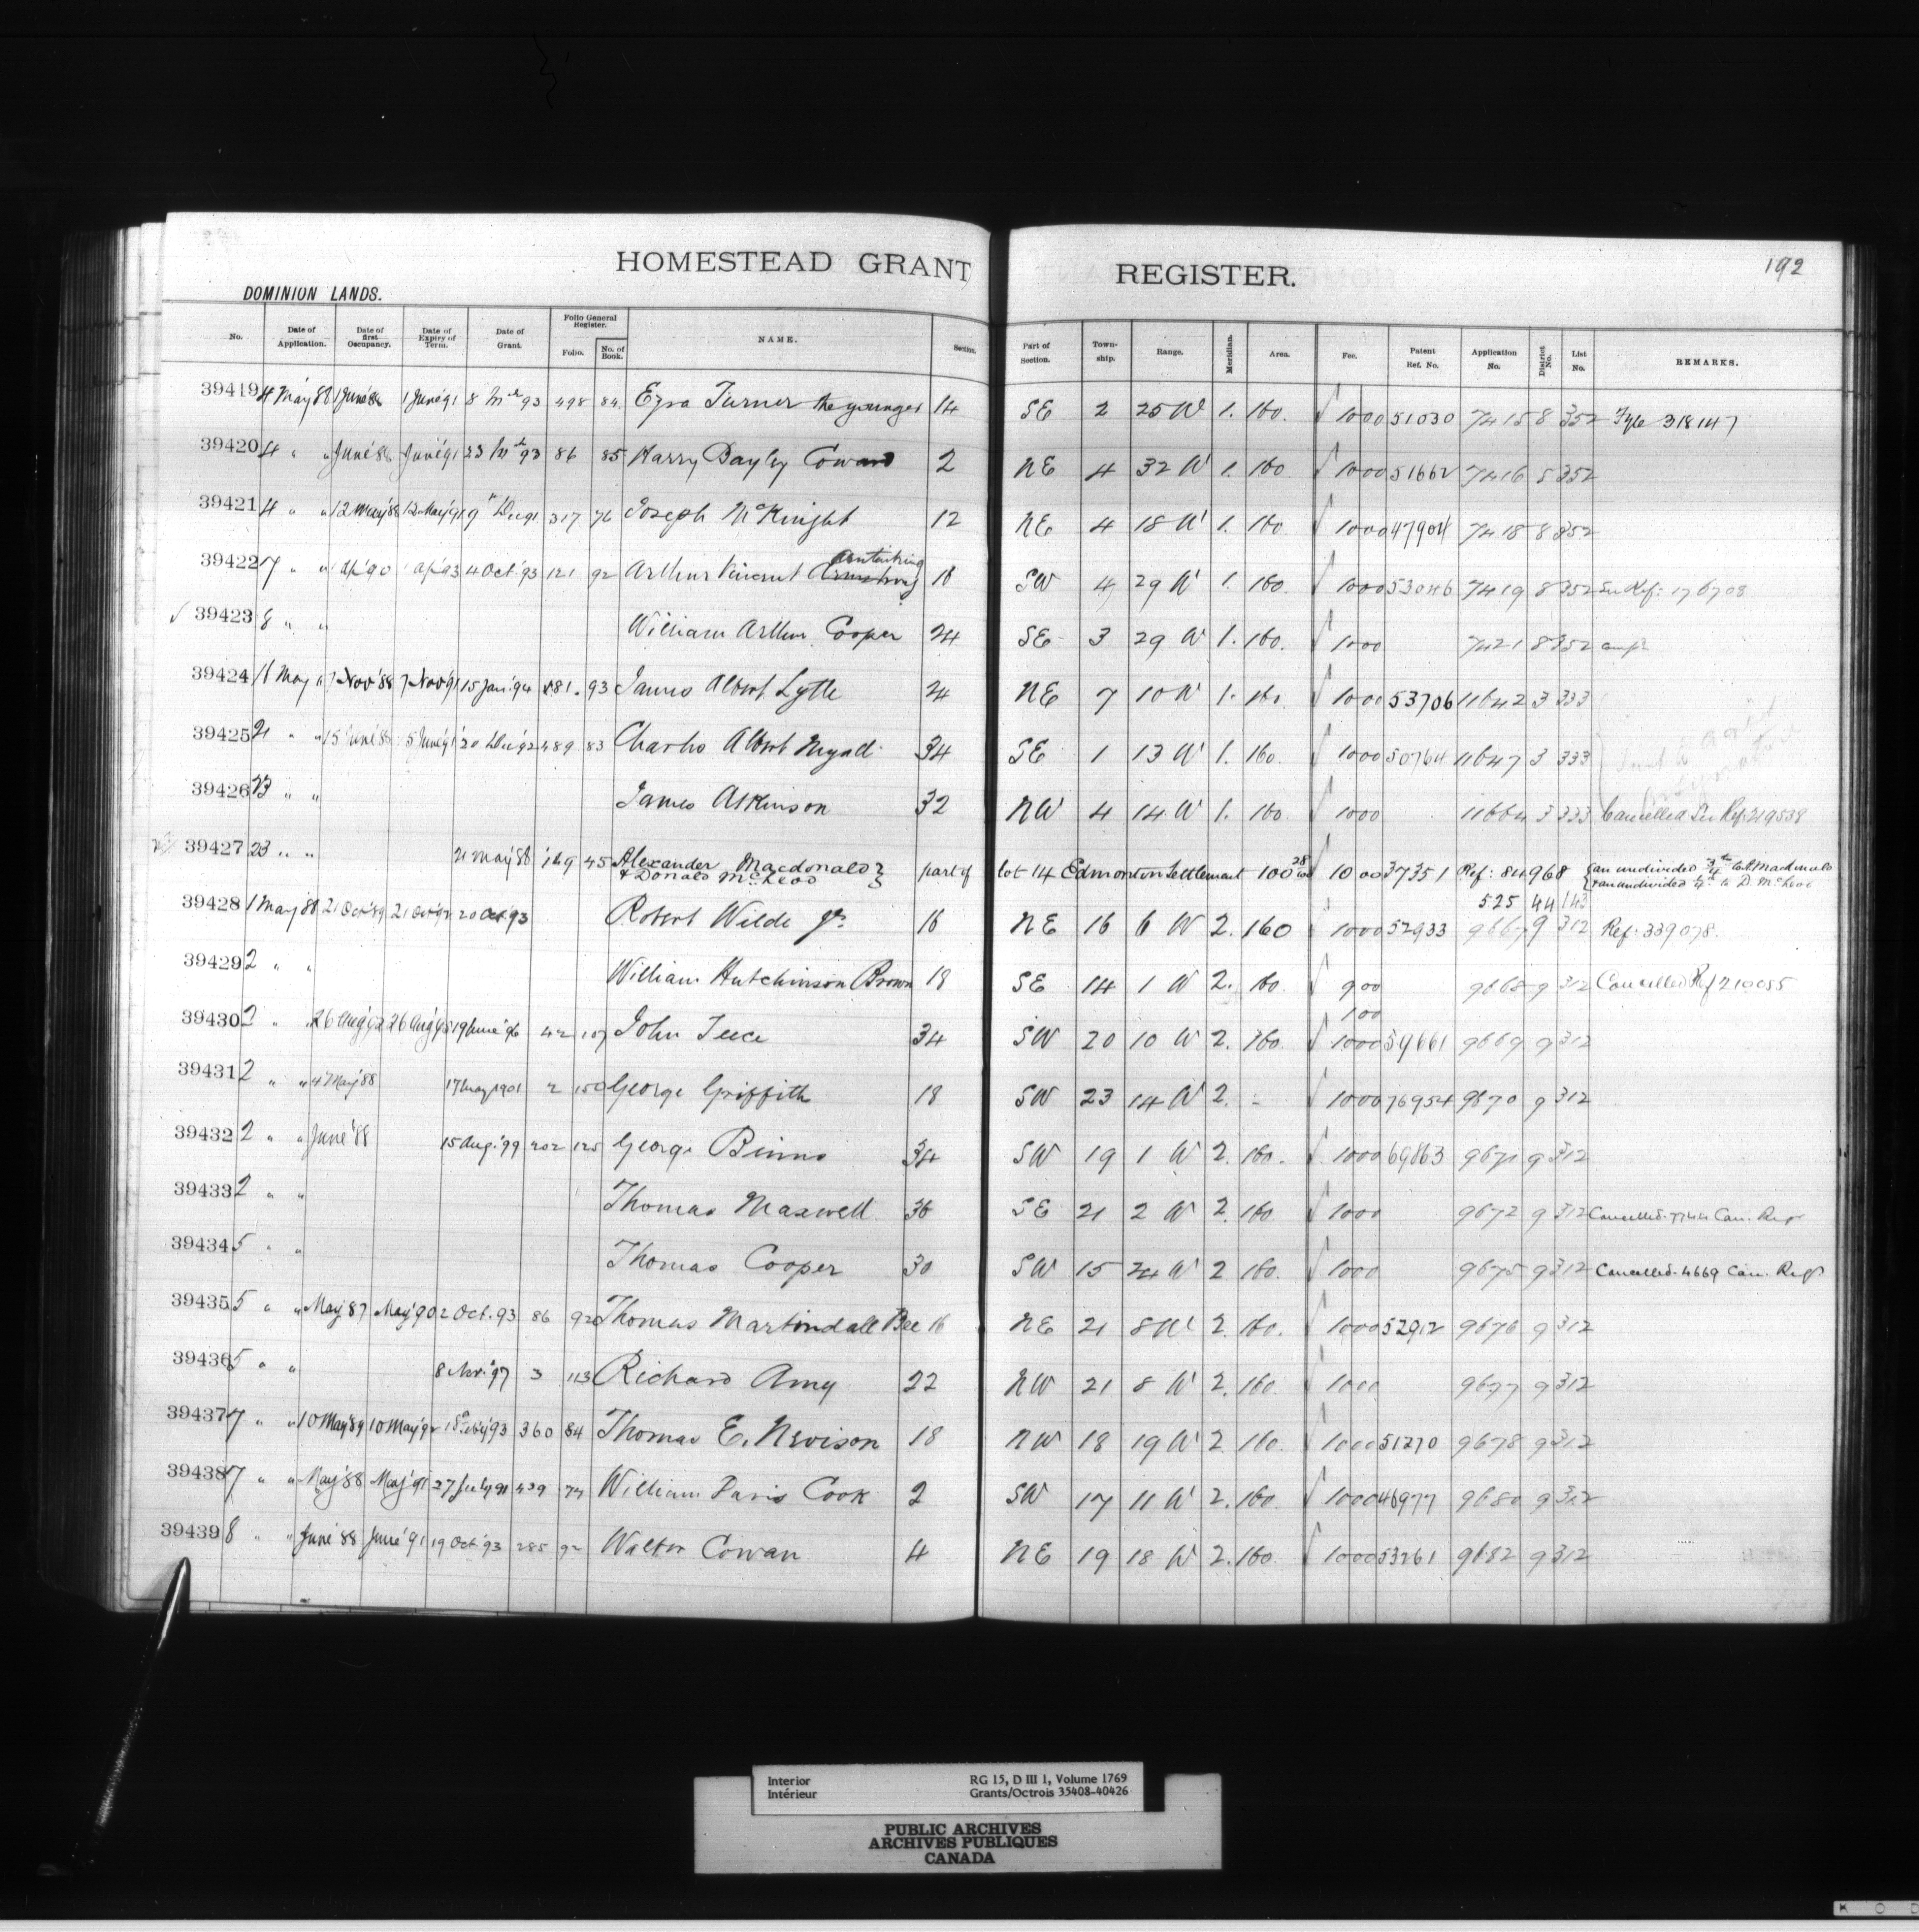 192
HOMESTEAD GRANT REGISTER.
DOMINION LANDS.
No. Date of Application. Date of first Occupancy. Date of Expiry of Term. Date of Grant. Folio General Register. Folio. No. of Book. NAME. Section. Part of Section. Town-ship. Range. Meridian. Area. Fee. Patent Ref. No. Application No. District No. List No. REMARKS.
39419 4 May 88 1 June 86 1 June 91 8 Mch 93 498 84 Ezra Turner the younger 14 SE 2 25 W 1. 160. 1000 51030 7415 8 352 Fyle 318147
39420 4 " " June 86 June '91 23 Mch 93 86 85 Harry Bayley Coward 2 NE 4 32 W 1. 160 1000 51662 7416 8 352
39421 4 " " 12 May '88 12 May '91 9 Dec 91 317 76 Joseph McKnight 12 NE 4 18 W 1. 160 1000 47904 7418 8 352
39422 7 " " 1 Ap '90 1 Ap '93 4 Oct '93 121 92 Arthur Vincent 16 SW 4 29 W 1. 160. 1000 53046 7419 8 352 See Ref: 176708
39423 8 " " William Arthur Cooper 24 SE 3 29 W 1. 160. 1000 7421 8 352
39424 11 May " 7 Nov '88 7 Nov 91 15 Jan '94 481 93 James Albert Lytle 24 NE 7 10 W 1. 160. 1000 53706 11642 3 333
39425 21 " " 15 June 88 15 June '91 20 Dec '92 489 83 Charles Albert Myall 34 SE 1 13 W 1. 160. 1000 50764 11647 3 333
39426 23 " " James Atkinson 32 NW 4 14 W 1. 160 1000 11664 3 333 Cancelled See Ref. 219538
39427 23 " " 21 May '88 169 45 Alexander Macdonald & Donald McLeod } part of lot 14 Edmonton Settlement 100 28/100 1000 37351 Ref: 84968 { an undivided 3/4 to A Macdonald & an undivided 1/4 to D. McLeod
525 44 143
39428 1 May 88 21 Oct '89 21 Oct '92 20 Oct. 93 Robert Wilde Jr. 16 NE 16 6 W 2. 160 1000 52933 9667 9 312 Ref: 339078.
39429 2 " " William Hutchinson Brown 18 SE 14 1 W 2. 160. 900 9668 9 312 Cancelled Ref 210055
100
39430 2 " " 26 Aug '92 26 Aug '95 19 June '96 42 107 John Teece 34 SW 20 10 W 2. 160. 1000 54661 9669 9 312
39431 2 " " 4 May '88 17 May 1901 2 150 George Griffith 18 SW 23 14 W 2. - 1000 76954 9670 9 312
39432 2 " " June '88 15 Aug. '99 202 125 George Binns 34 SW 19 1 W 2. 160. 1000 69863 9671 9 312
39433 2 " " Thomas Maxwell 36 SE 21 2 W 2. 160. 1000 9672 9 312 Cancelled. 7744 Can. Regr
39434 5 " " Thomas Cooper 30 SW 15 24 W 2 160. 1000 9675 9 312 Cancelled. 4669 Can. Regr
39435 5 " " May '87 May '90 2 Oct. 93 86 92 Thomas Martindall Bee 16 NE 21 8 W 2. 160. 1000 52912 9676 9 312
39436 5 " " 8 Nov. '97 3 113 Richard Amy 22 NW 21 8 W 2. 160. 1000 9677 9 312
39437 7 " " 10 May '89 10 May '92 18 Feby '93 360 84 Thomas E. Nevison 18 NW 18 19 W 2 160. 1000 51270 9678 9 312
39438 7 " " May '88 May '91 27 July 91 439 74 William Davis Cook 2 SW 17 11 W 2. 160. 1000 46977 9680 9 312
39439 8 " " June '88 June '91 19 Oct. 93 285 92 Walter Cowan 4 NE 19 18 W 2. 160. 1000 53261 9682 9 312
Interior RG 15, D III 1, Volume 1769
Intérieur Grants/Octrois 35408-40426
PUBLIC ARCHIVES
ARCHIVES PUBLIQUES
CANADA
K O D